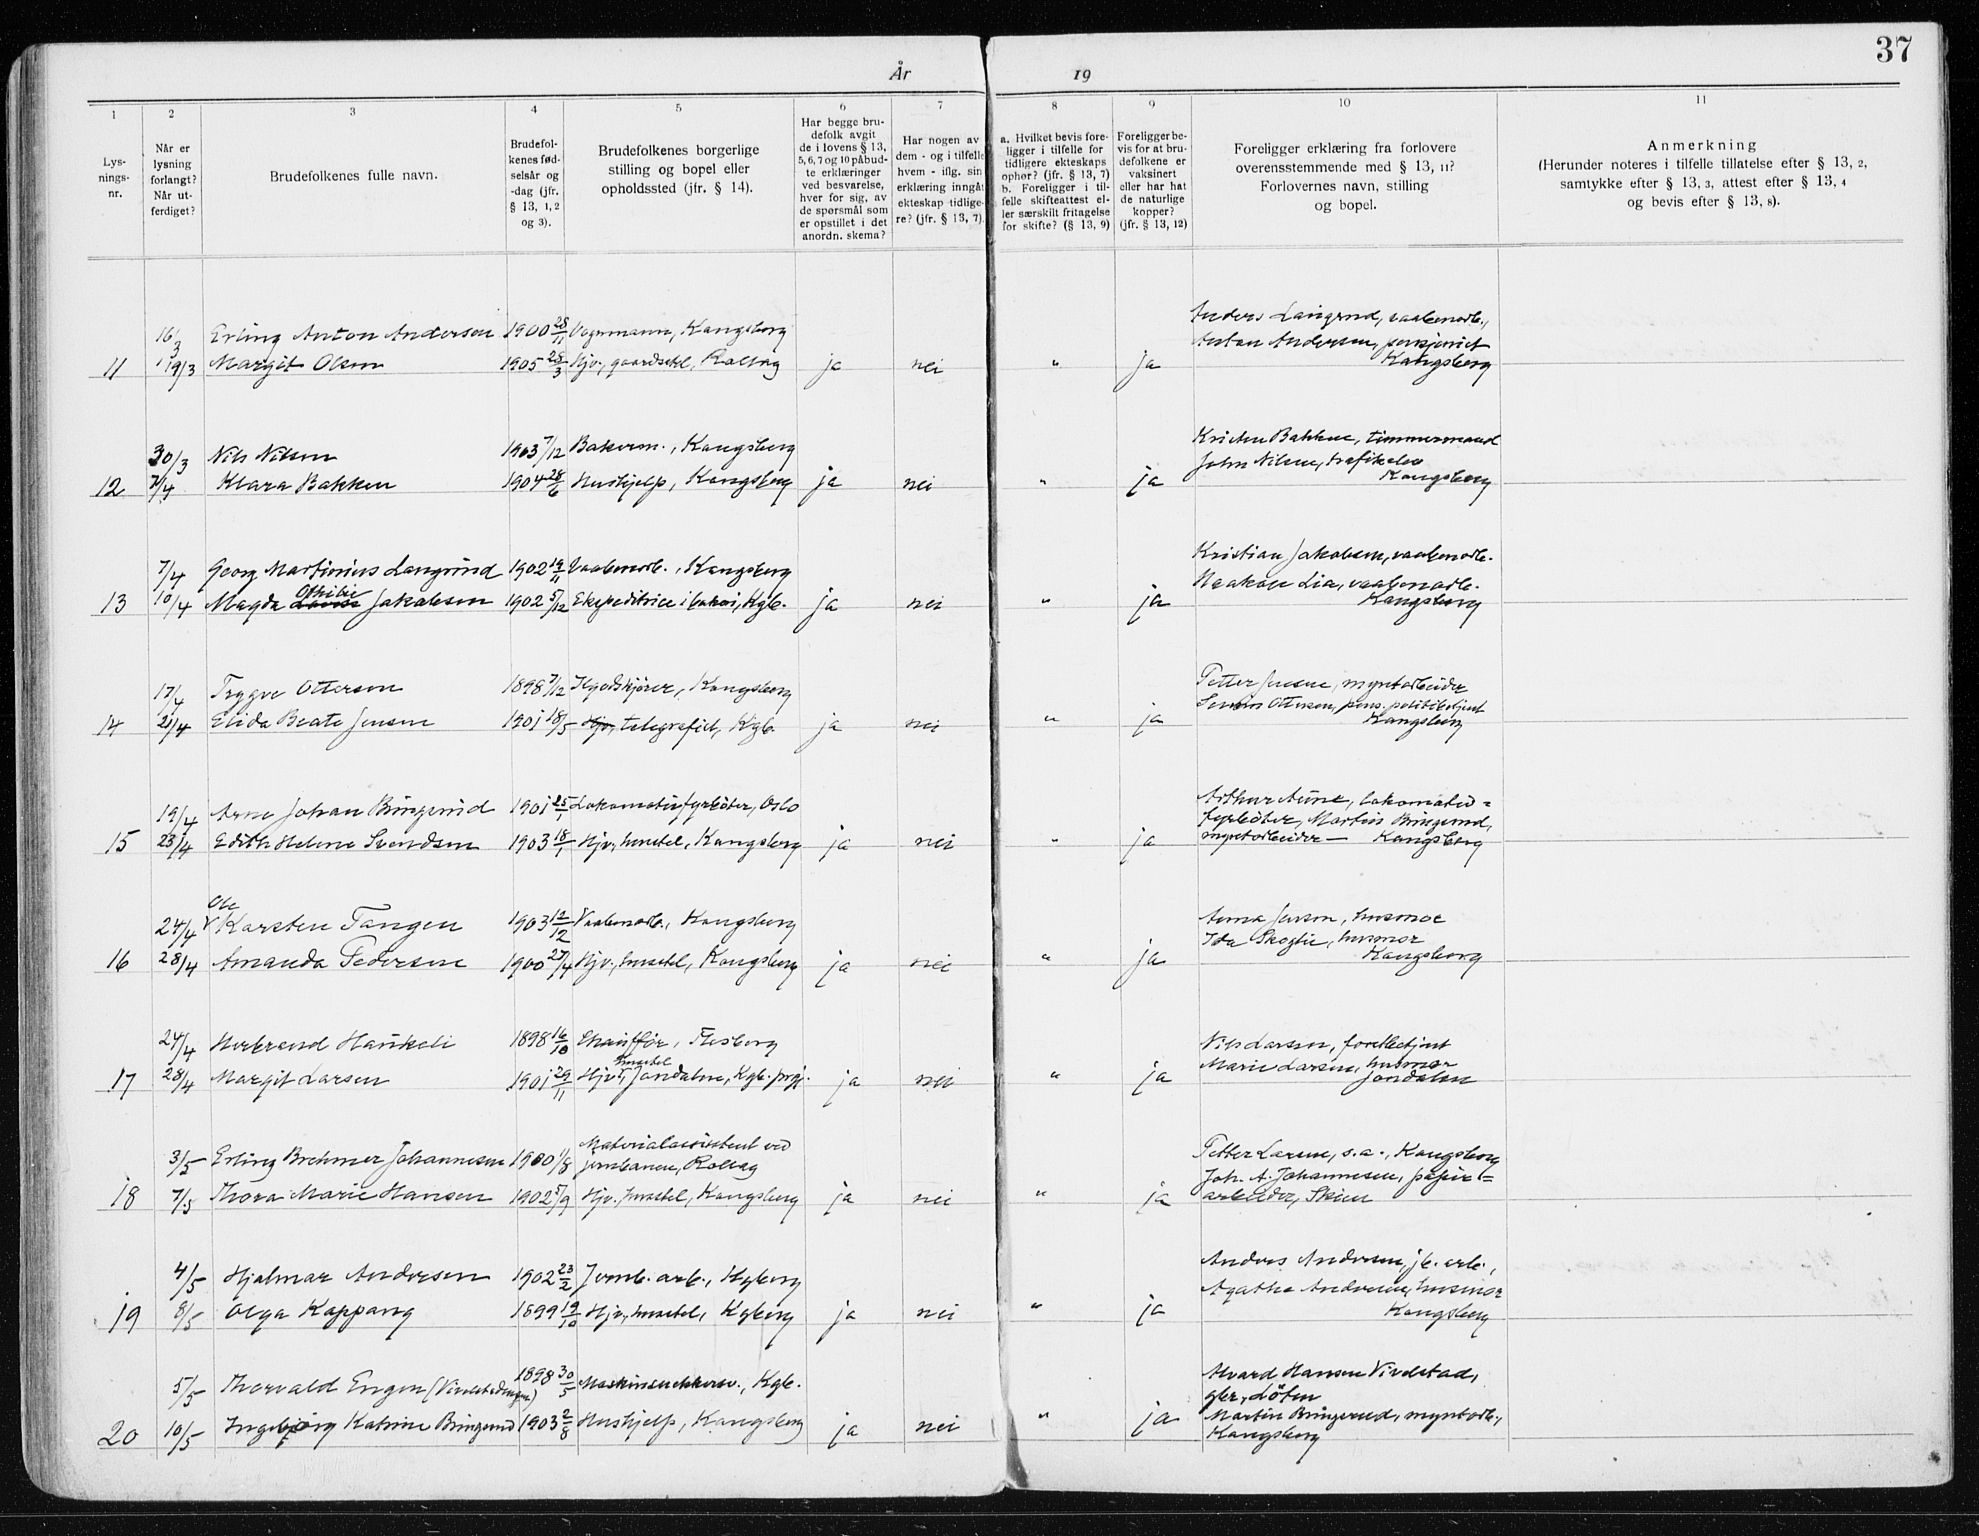 37
År 19
1 2 3 4 5 6 7 8 9 10 11
Lysnings-nr.
Når er lysning forlangt? Når utferdiget?
Brudefolkenes fulle navn.
Brudefolkenes fødselsår og -dag (jfr. § 13, 1, 2 og 3).
Brudefolkenes borgerlige stilling og bopel eller opholdssted (jfr. § 14).
Har begge brudefolk avgit de i lovens § 13, 5, 6, 7 og 10 påbudte erklæringer ved besvarelse, hver for sig, av de spørsmål som er opstillet i det anordn. skema?
Har nogen av dem - og i tilfelle hvem - iflg. sin erklæring inngåt ekteskap tidligere? (jfr. § 13, 7).
a. Hvilket bevis foreligger i tilfelle for tidligere ekteskaps ophør? (jfr. § 13, 7) b. Foreligger i tilfelle skifteattest eller særskilt fritagelse for skifte? (§ 13, 9)
Foreligger bevis for at brudefolkene er vaksinert eller har hat de naturlige kopper? (jfr. § 13, 12)
Foreligger erklæring fra forlovere overensstemmende med § 13, 11? Forlovernes navn, stilling og bopel.
Anmerkning (Herunder noteres i tilfelle tillatelse efter § 13, 2, samtykke efter § 13, 3, attest efter § 13, 4 og bevis efter § 13, 8).
Anders Langrud, vaabenarb.,
16/3 Erling Anton Andersen 1900 28/11 Vognmann, Kongsberg Anton Andersen, pensjonist
11 19/3 Margit Olsen 1905 25/3 Hjv., gaardsstel, Rollag ja nei " ja Kongsberg
Kristen Bakken, timmermand
30/3 Nils Nilsen 1903 7/12 Bakersv., Kongsberg John Nilsen, trafikelev
12 7/4 Klara Bakken 1904 28/6 Hushjelp, Kongsberg ja nei " ja Kongsberg
Kristian Jakobsen, vaabenarb.
7/4 Georg Martinius Langrud 1902 19/11 Vaabenarb., Kongsberg Haakon Lia, vaabenarb.
Othilie
13 10/4 Magda Lovise Jakobsen 1902 5/12 Ekspeditrice i bakeri, Kgb. ja nei " ja Kongsberg
Petter Jensen, myntarbeider
17/4 Trygve Ottersen 1898 7/12 Kongsberg Ottersen, pens. politibetjent
14 21/4 Elida Beate Jensen 1901 18/5 Hjv., telegrafist, Kgb. ja nei " ja Kongsberg
Arthur Aune, lokomotiv=
19/4 Arne Johan Bingerud 1901 25/1 Lokomotivfyrbøter, Oslo fyrbøter, Martin Bingerud,
15 23/4 Edith Helene Svendsen 1903 18/1 Hjv., husstel, Kongsberg ja nei " ja myntarbeider — Kongsberg
Ole
24/4 V Karsten Tangen 1903 12/12 Vaabenarb., Kongsberg Anna Jensen, husmor
Ida Skoglie, husmor
16 28/4 Amanda Pedersen 1900 27/4 Hjv., husstel, Kongsberg ja nei " ja Kongsberg
24/4 Herbrand Haukeli 1898 16/10 Chauffør, Flesberg Nils Larsen, forstbetjent
husstel
Marie Larsen, husmor
17 28/4 Margit Larsen 1901 29/11 Hjv., Jondalen, Kgb. prgj. ja nei " ja Jondalen
Materialassistent ved
3/5 Erling Brehmer Johannesen 1900 1/8 jernbanen, Rollag Petter Larsen, s.a., Kongsberg
Joh. A. Johannesen, papir=
18 7/5 Thora Marie Hansen 1902 5/9 Hjv., husstel, Kongsberg ja nei " ja arbeider, Skien
Anders Andersen, jb. arb.,
4/5 Hjalmar Andersen 1902 23/2 Jernb. arb., Kgberg Agathe Andersen, husmor
19 8/5 Olga Kappang 1899 19/10 Hjv., husstel, Kgberg ja nei " ja Kongsberg
Alvard Hansen Vivelstad,
5/5 Thorvald Engen (Vivelstadengen) 1898 30/5 Maskinsnekkersv., Kgb. gbr., Løten
20 10/5 Ingebjørg Katrine Bingerud 1903 2/8 Hushjelp, Kongsberg ja nei " ja Martin Bingerud, myntarb.,
Kongsberg